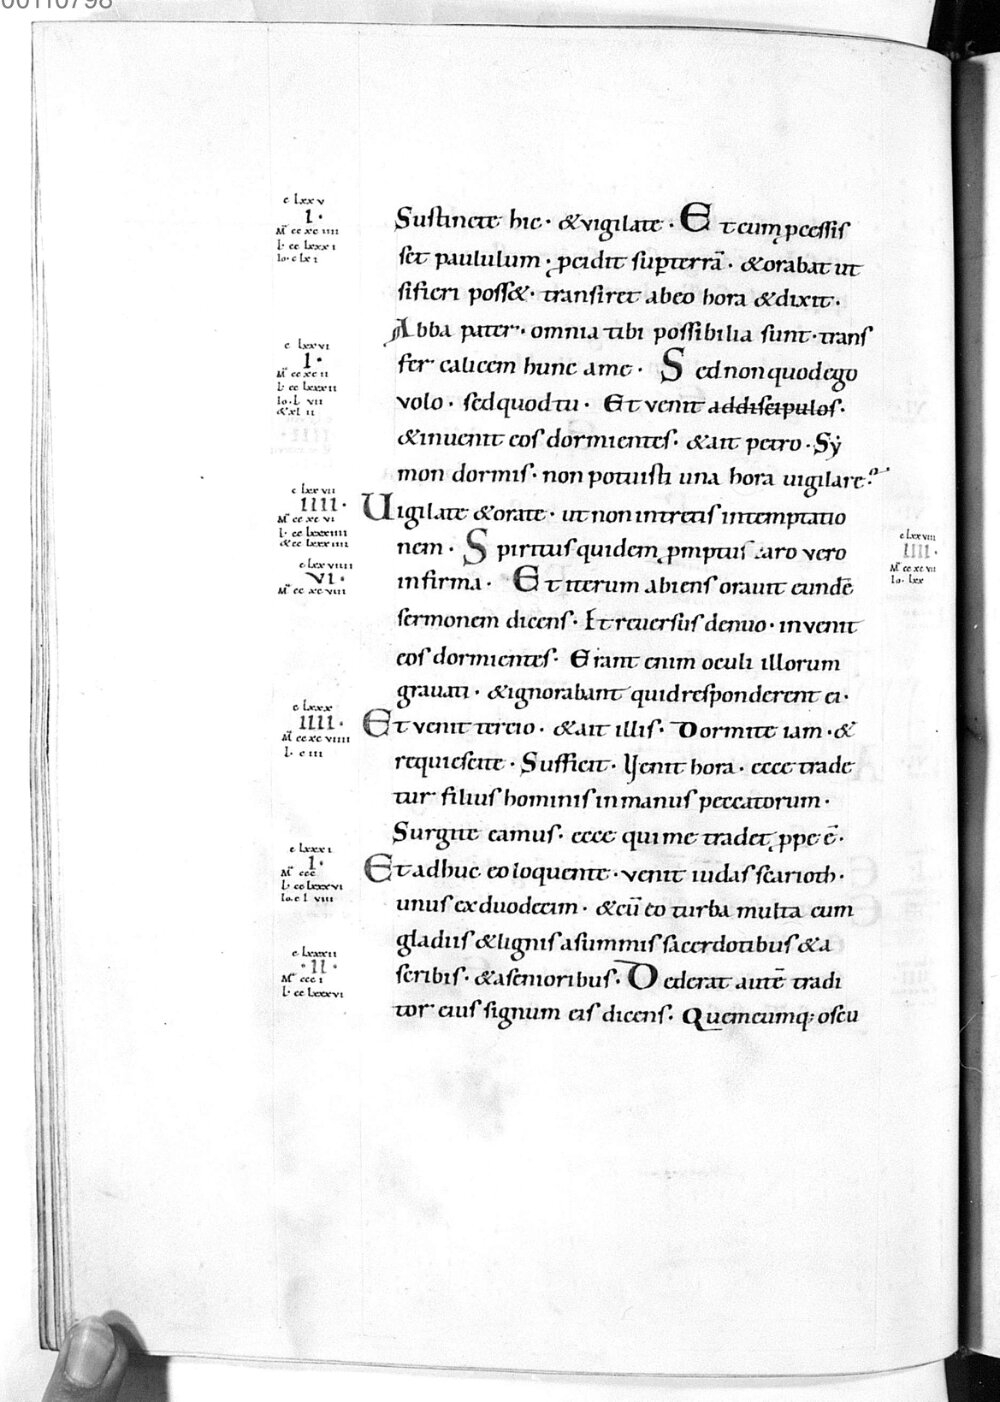 00110798
c lxxv
I·
M̄ cc xc iiii
L· cc lxxx i
Io· c lx i
Sustinete hic· &vigilate· Et cum p̱cessis
set paululum· p̱cidit sup̱terrā· &orabat ut
si fieri poss&· transiret abeo hora &dixit·
Abba pater· omnia tibi possibilia sunt· trans
c lxxvi
I·
M̄ cc xc ii
L· cc lxxx ii
Io· L vii
&xl ii
fer calicem hunc ame· Sed non quod ego
volo· sed quod tu· Et venit addiscipulos·
&invenit eos dormientes· &ait petro· Sẏ
mon dormis· non potuisti una hora vigilare?
c lxx vii
IIII·
M̄ cc xc vi
L· cc lxxx iiii
&cc lxxx iiii
Vigilate &orate· ut non intretis intemptatio
nem· Spiritus quidem p̱mptus caro vero
c lxx viii
IIII·
M̄ cc xc vii
Io· lxx
c lxx viiii
VI·
M̄ cc xc viii
infirma· Et iterum abiens oravit eundē
sermonem dicens· Et reversus denuo· invenit
eos dormientes· Erant enim oculi illorum
gravati· &ignorabant quid responderent ei·
c lxxx
IIII·
M̄ cc xc viiii
L· c iii
Et venit tercio· &ait illis· Dormite iam· &
requiescite· Sufficit· Venit hora· ecce trade
tur filius hominis in manus peccatorum·
Surgite eamus· ecce qui me tradet p̱pe ē·
c lxxx i
I·
M̄ ccc
L· cc lxxxvi
Io· c l viii
Et adhuc eo loquente· venit iudas scarioth·
unus ex duodecim· &cū eo turba multa cum
gladiis &lignis asummis sacerdotibus &a
c lxxxii
·II·
M̄ ccc i
L· cc lxxxvi
scribis· &asenioribus· Dederat autē tradi
tor eius signum eis dicens· Quemcumq; oscu